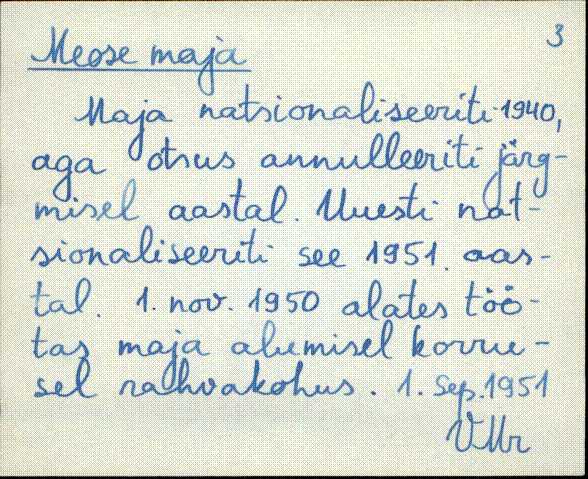 3
Meose maja
Maja natsionaliseeriti 1940,
aga otsus annulleeriti järg-
misel aastal. Uuesti nat-
sionaliseeriti see 1951. aas-
tal. 1. nov. 1950 alates töö-
tas maja alumisel korru-
sel rahvakohus. 1. Sep. 1951